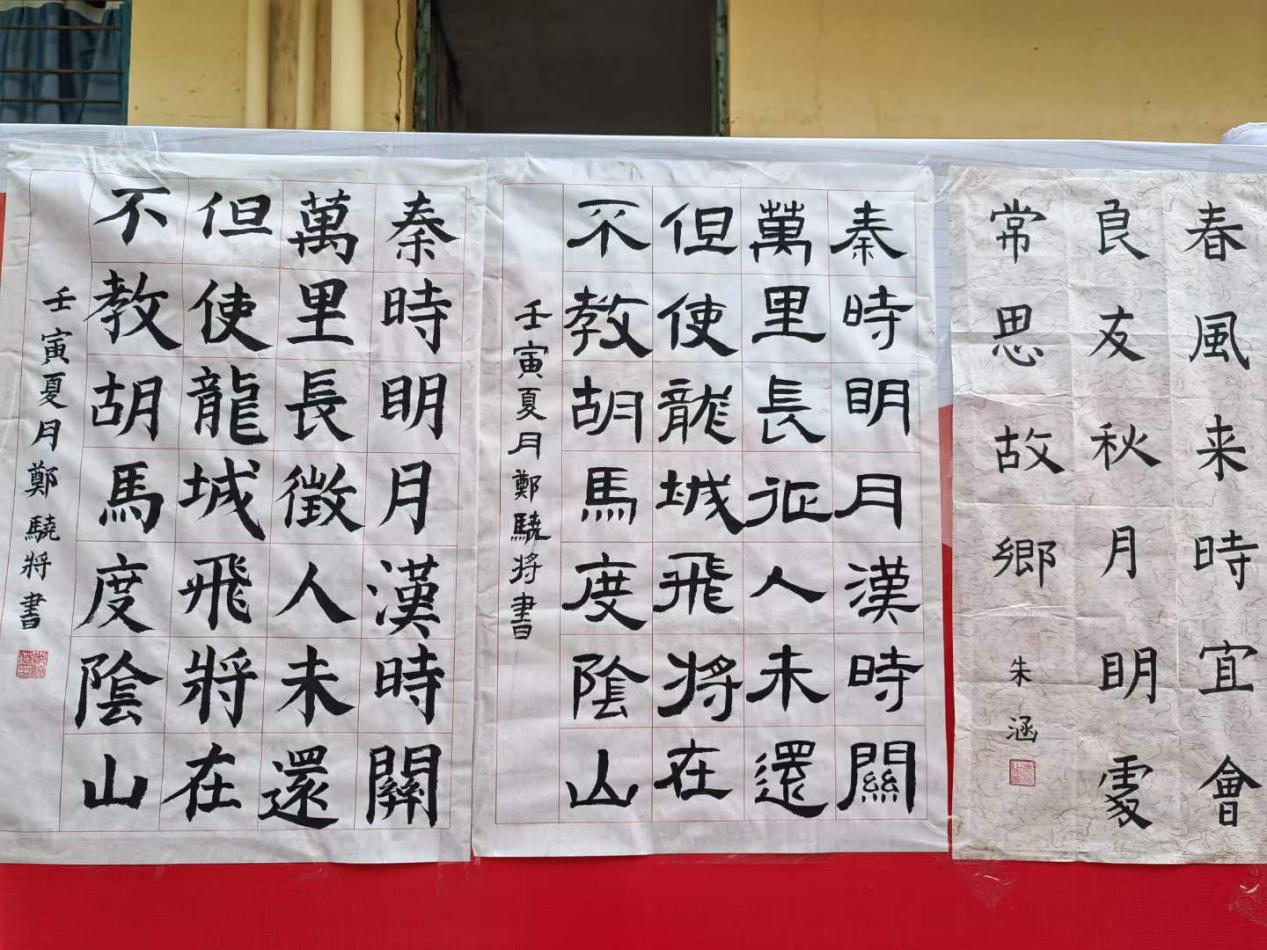 春風来時宜會
良友秋月明處
常思故鄉
朱涵
秦時明月漢時關
萬里長征人未還
但使龍城飛將在
不教胡馬度陰山
壬寅夏月鄭驍將書
秦時明月漢時關
萬里長徵人未還
但使龍城飛將在
不教胡馬度陰山
壬寅夏月鄭驍將書